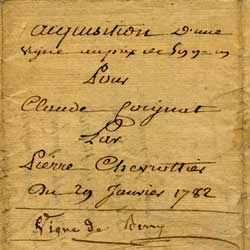 acquisition d'une
vigne au prix de
Pour
Claude Poignat
Par
Pierre Chevrottier
Du 29 Janvier 1782
Vigne de